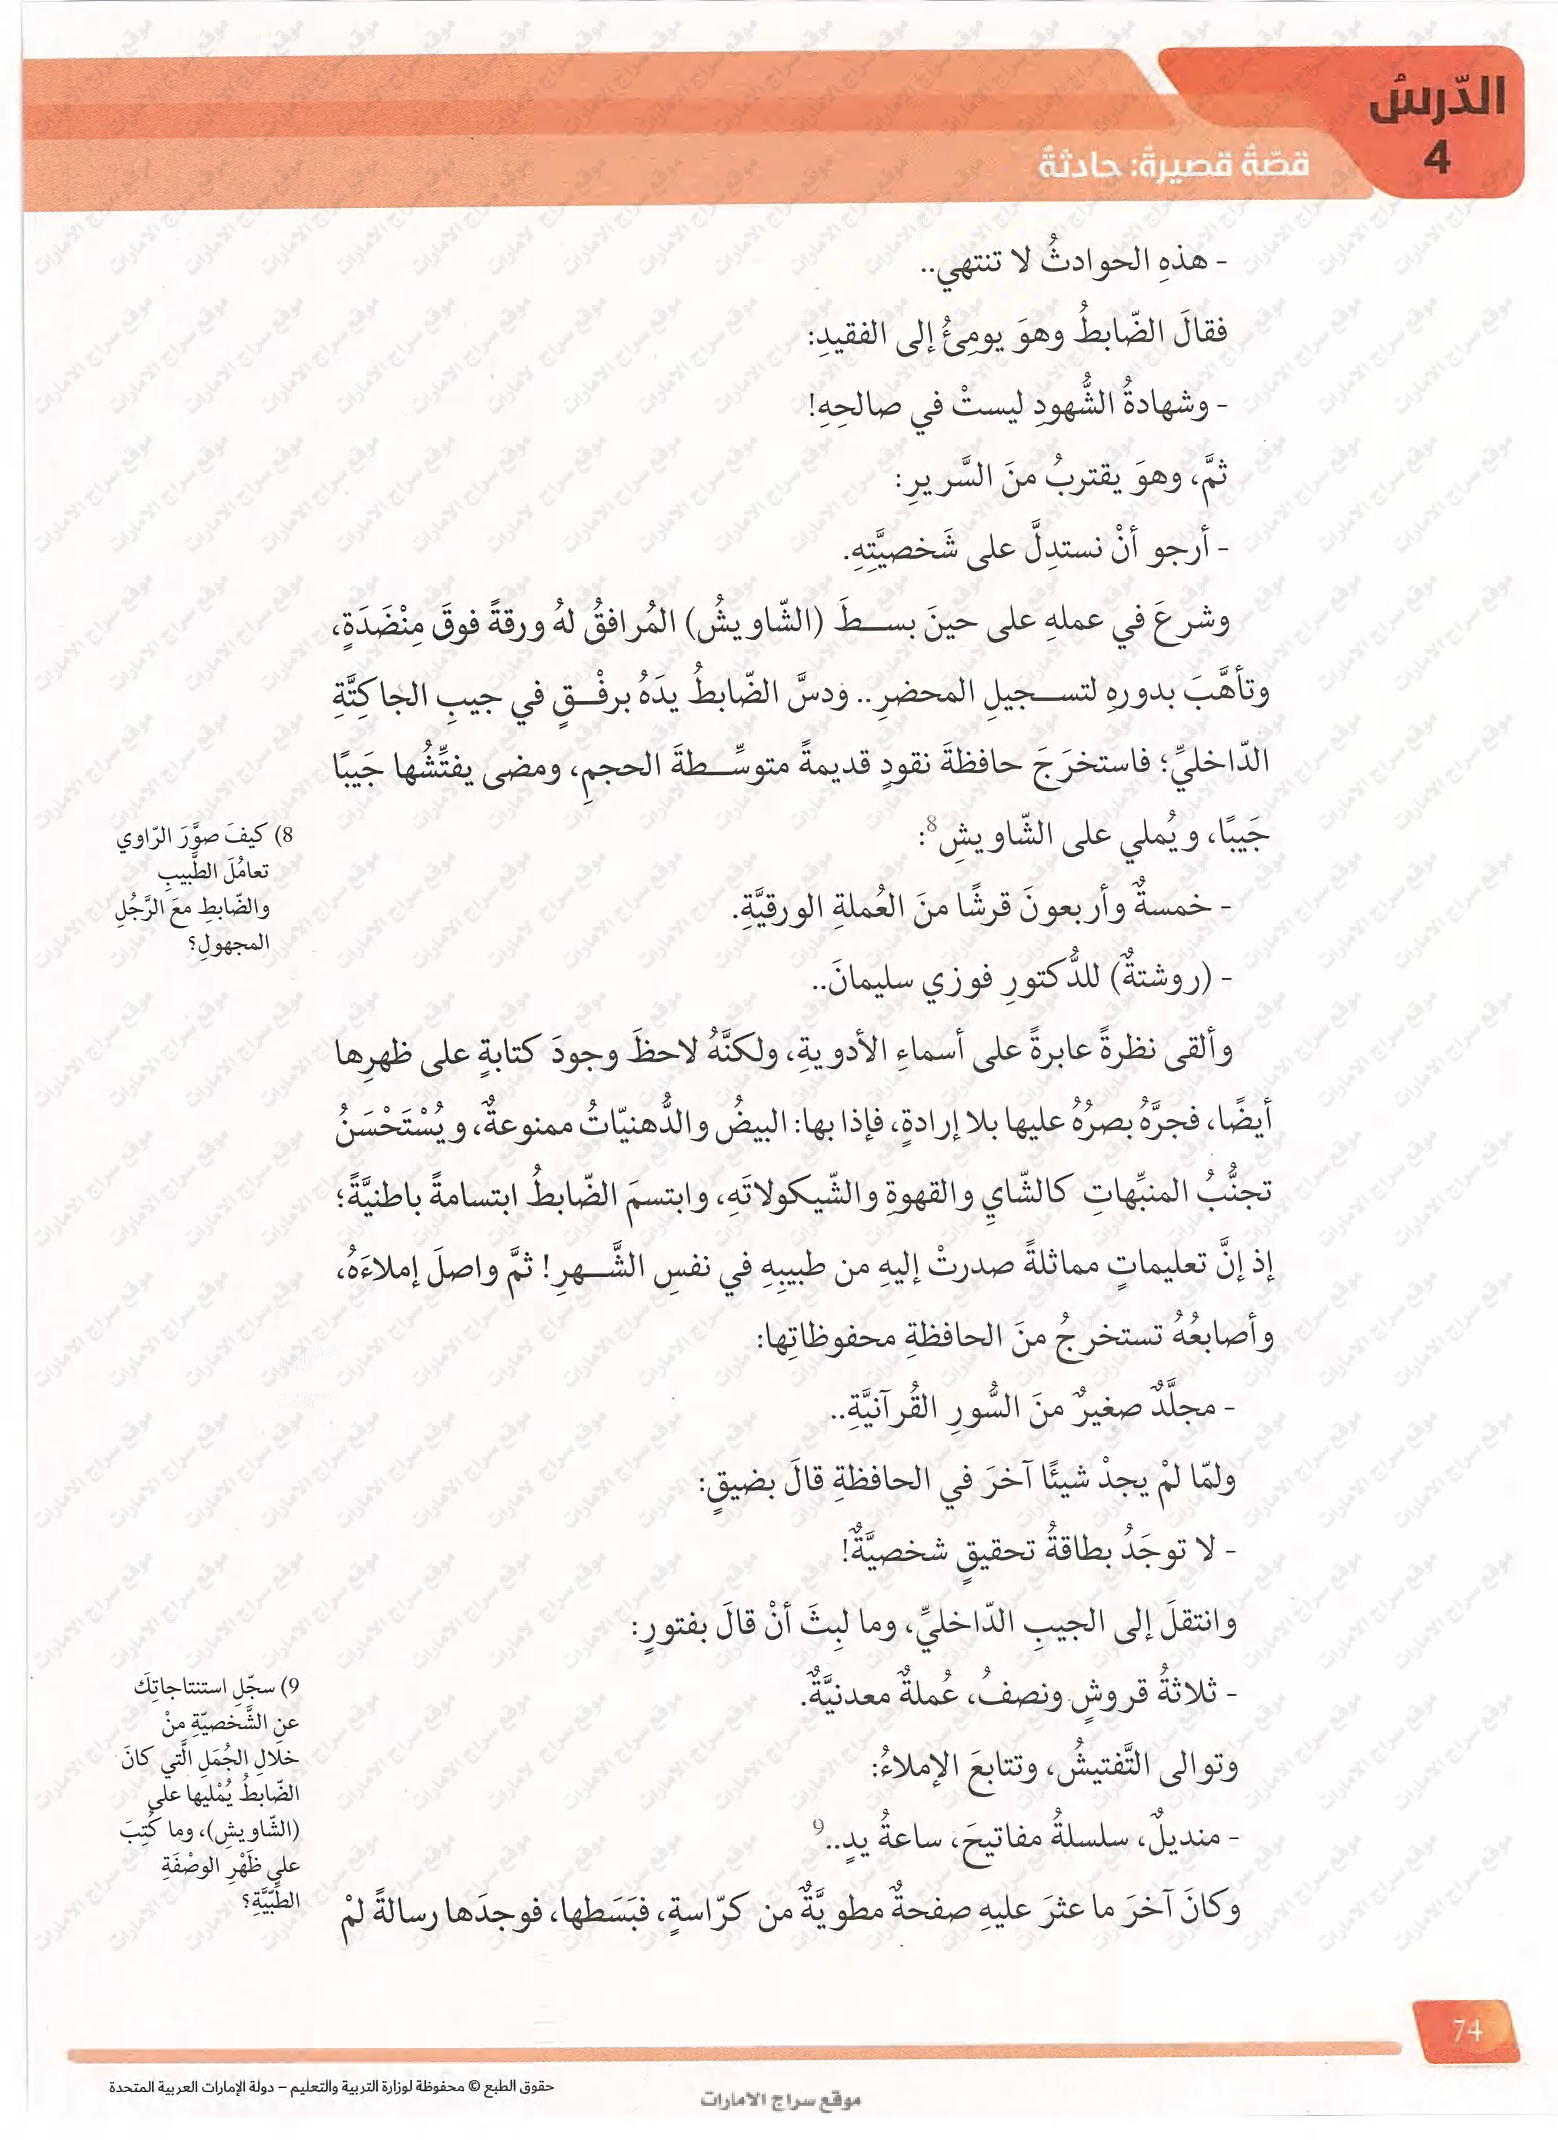 الدّرسُ
4
قصّةٌ قصيرةٌ: حادثةٌ
- هذهِ الحوادثُ لا تنتهي..
فقالَ الضّابطُ وهوَ يومِئُ إلى الفقيدِ:
- وشهادةُ الشُّهودِ ليستْ في صالحِهِ!
ثمَّ، وهوَ يقتربُ منَ السَّريرِ:
- أرجو أنْ نستدِلَّ على شَخصيَّتِهِ.
وشرعَ في عملهِ على حينَ بسطَ (الشّاويشُ) المُرافقُ لهُ ورقةً فوقَ مِنْضَدَةٍ،
وتأهَّبَ بدورهِ لتسجيلِ المحضرِ.. ودسَّ الضّابطُ يدَهُ برفْقٍ في جيبِ الجاكِتَّةِ
الدّاخليِّ؛ فاستخرَجَ حافظةَ نقودٍ قديمةً متوسِّطةَ الحجمِ، ومضى يفتِّشُها جَيبًا
جَيبًا، ويُملي على الشّاويشِ8:
- خمسةٌ وأربعونَ قرشًا منَ العُملةِ الورقيَّةِ.
- (روشتةٌ) للدُّكتورِ فوزي سليمانَ..
وألقى نظرةً عابرةً على أسماءِ الأدويةِ، ولكنَّهُ لاحظَ وجودَ كتابةٍ على ظهرِها
أيضًا، فجرَّهُ بصرُهُ عليها بلا إرادةٍ، فإذا بها: البيضُ والدُّهنيّاتُ ممنوعةٌ، ويُسْتَحْسَنُ
تجنُّبُ المنبِّهاتِ كالشّايِ والقهوةِ والشّيكولاتَهِ، وابتسمَ الضّابطُ ابتسامةً باطنيَّةً؛
إذ إنَّ تعليماتٍ مماثلةً صدرتْ إليهِ من طبيبِهِ في نفسِ الشَّهرِ! ثمَّ واصلَ إملاءَهُ،
وأصابعُهُ تستخرجُ منَ الحافظةِ محفوظاتِها:
- مجلَّدٌ صغيرٌ منَ السُّورِ القُرآنيَّةِ..
ولمّا لمْ يجدْ شيئًا آخرَ في الحافظةِ قالَ بضيقٍ:
- لا توجَدُ بطاقةُ تحقيقٍ شخصيَّةٌ!
وانتقلَ إلى الجيبِ الدّاخليِّ، وما لبِثَ أنْ قالَ بفتورٍ:
- ثلاثةُ قروشٍ ونصفُ، عُملةٌ معدنيَّةٌ.
وتوالى التَّفتيشُ، وتتابعَ الإملاءُ:
- منديلٌ، سلسلةُ مفاتيحَ، ساعةُ يدٍ..9
وكانَ آخرَ ما عثرَ عليهِ صفحةٌ مطويَّةٌ من كرّاسةٍ، فبَسَطها، فوجدَها رسالةً لمْ
8) كيفَ صوَّرَ الرّاوي
تعامُلَ الطَّبيبِ
والضّابطِ معَ الرَّجُلِ
المجهولِ؟
9) سجّلِ استنتاجاتِكَ
عنِ الشَّخصيّةِ منْ
خلالِ الجُمَلِ الَّتي كانَ
الضّابطُ يُمْليها على
(الشّاويشِ)، وما كُتِبَ
على ظَهْرِ الوصْفَةِ
الطِّبّيَّةِ؟
74
حقوق الطبع © محفوظة لوزارة التربية والتعليم – دولة الإمارات العربية المتحدة
موقع سراج الامارات